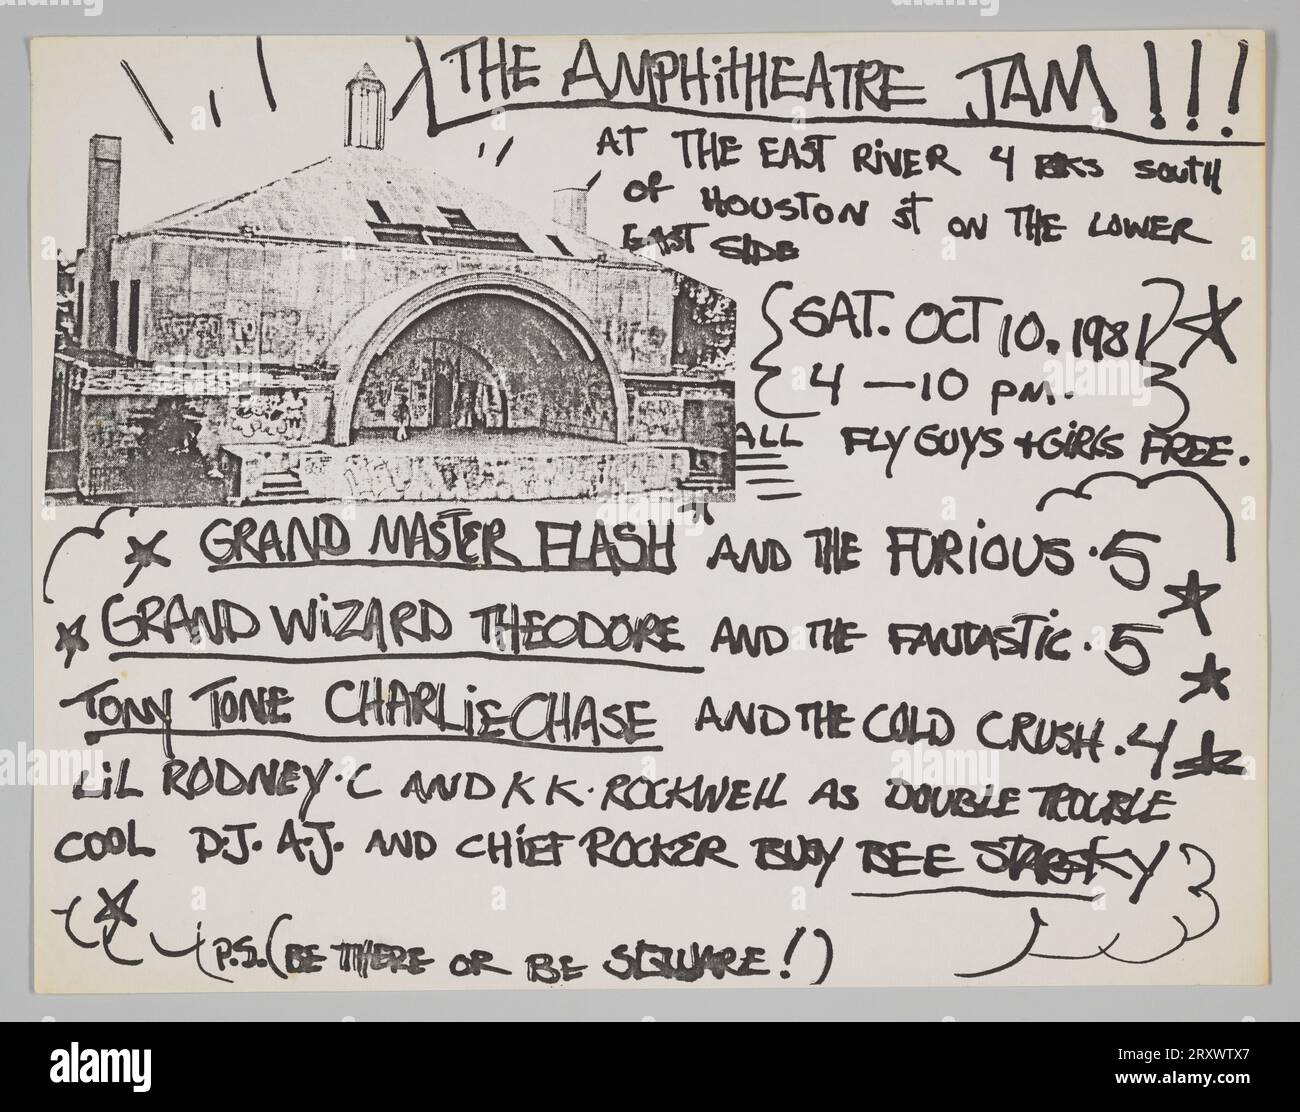 THE AMPHITHEATRE JAM!!!
AT THE EAST RIVER 4 BKS SOUTH
OF HOUSTON ST ON THE LOWER
EAST SIDE
SAT. OCT 10, 1981
4 — 10 PM.
ALL FLY GUYS + GIRLS FREE.
GRAND MASTER FLASH AND THE FURIOUS · 5
GRAND WIZARD THEODORE AND THE FANTASTIC · 5
TONY TONE CHARLIE CHASE AND THE COLD CRUSH · 4
LIL RODNEY · C AND K K · ROCKWELL AS DOUBLE TROUBLE
COOL D.J. A.J. AND CHIEF ROCKER BUSY BEE STARSKY
P.S. (BE THERE OR BE SQUARE!)
alamy
Image ID: 2RXWTX7
www.alamy.com